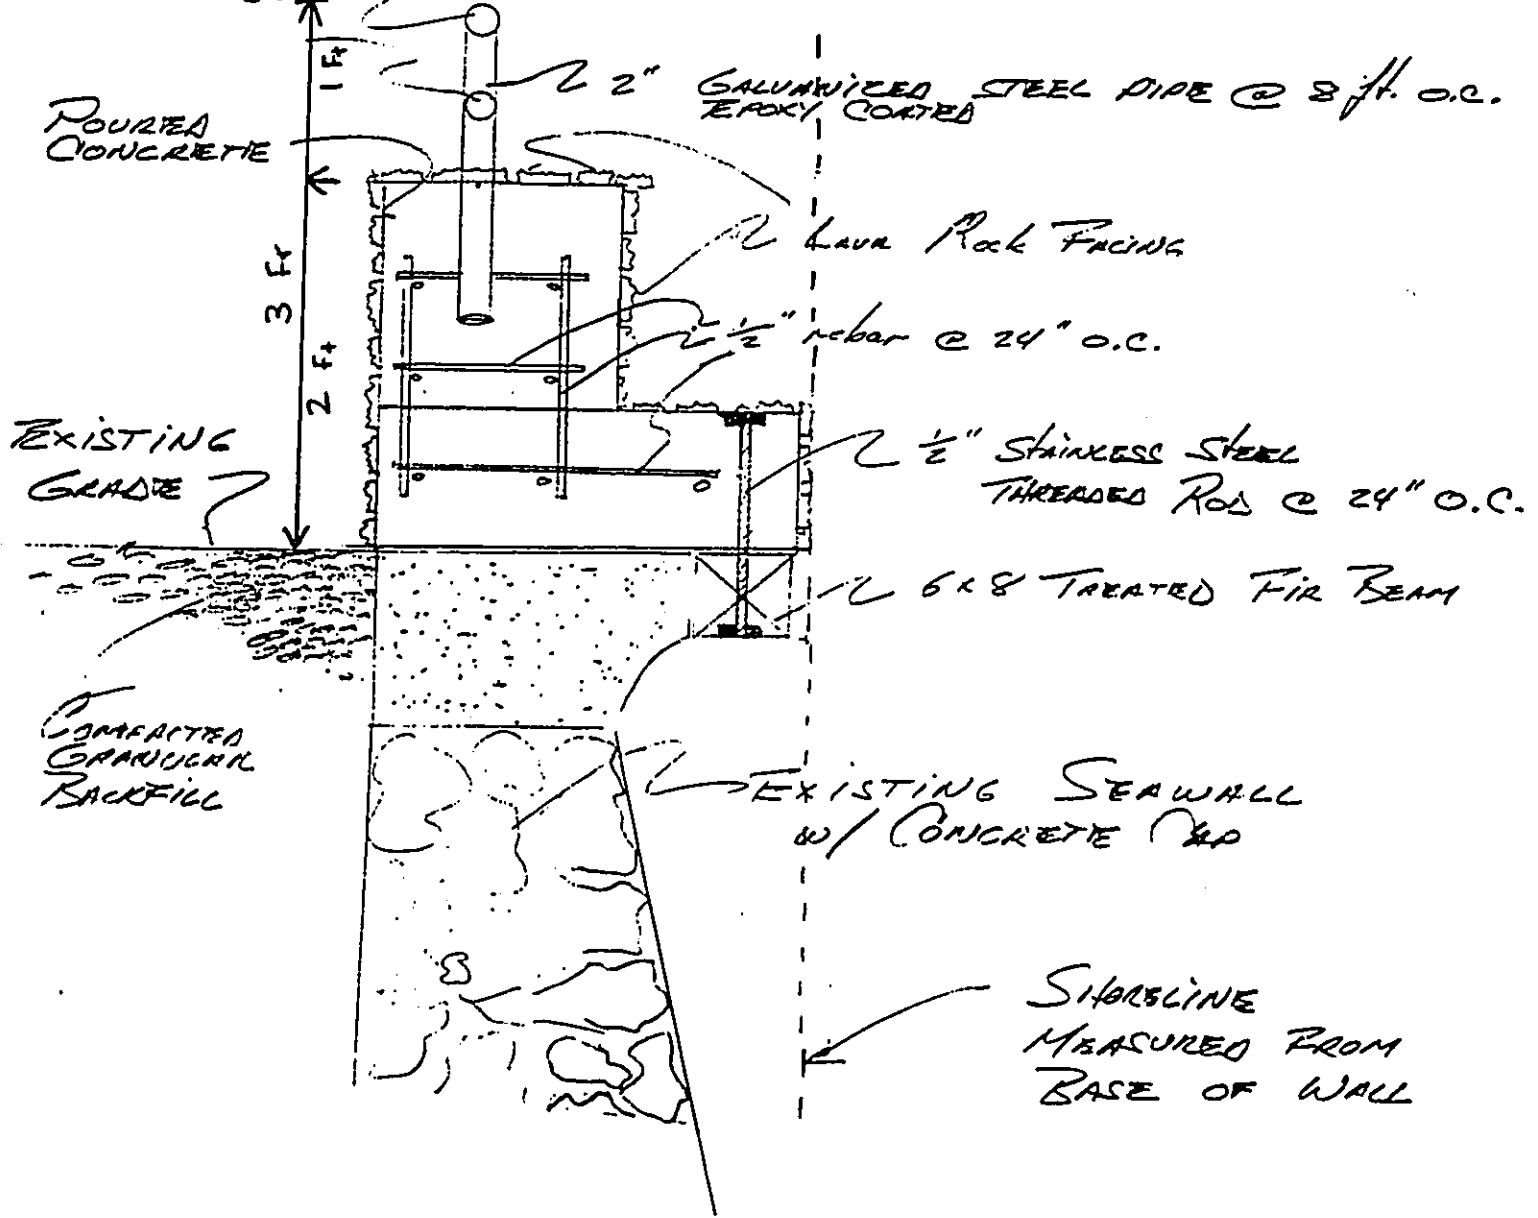 1 Ft
2" GALVANIZED STEEL PIPE @ 8 ft. O.C.
EPOXY COATED
POURED
CONCRETE
LAVA ROCK FACING
3 FT
1/2" rebar @ 24" O.C.
2 Ft
EXISTING
GRADE
1/2" STAINLESS STEEL
THREADED ROD @ 24" O.C.
6x8 TREATED FIR BEAM
COMPACTED
GRANULAR
BACKFILL
EXISTING SEAWALL
w/ CONCRETE CAP
SHORELINE
MEASURED FROM
BASE OF WALL